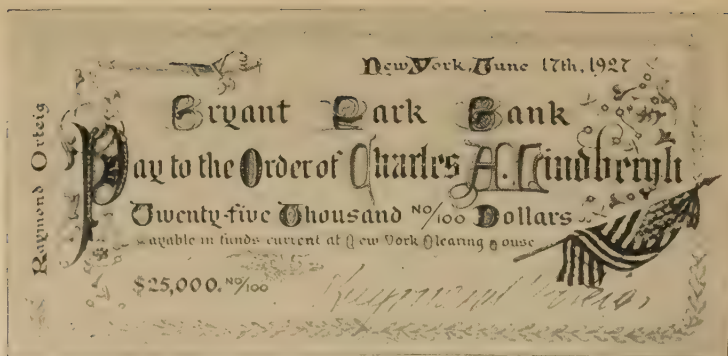 Raymond Orteig
New York, June 17th, 1927
Bryant Park Bank
Pay to the Order of Charles A. Lindbergh
Twenty-five Thousand No/100 Dollars
Payable in funds current at New York Clearing House
$25,000. No/100
Raymond Orteig